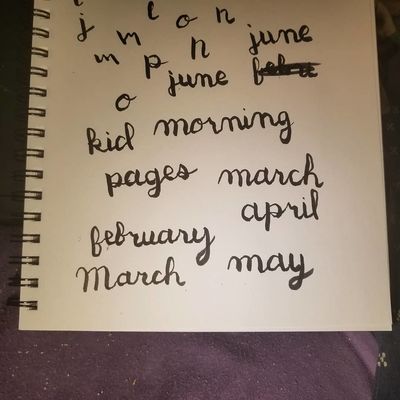 j l o n
m p n june
june
o
kid morning
pages march
april
february
March may